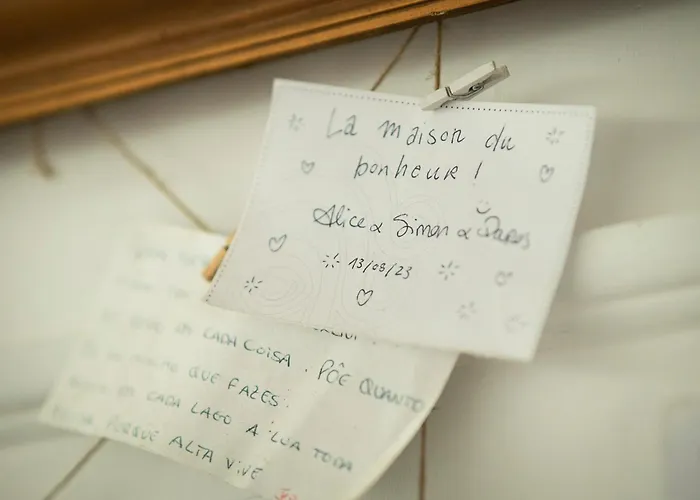 La maison du
bonheur !
Alice & Simon &
13/08/23
CADA COISA. PÕE QUANTO
QUE FAZES.
CADA LAGO A LUA TODA
PORQUE ALTA VIVE